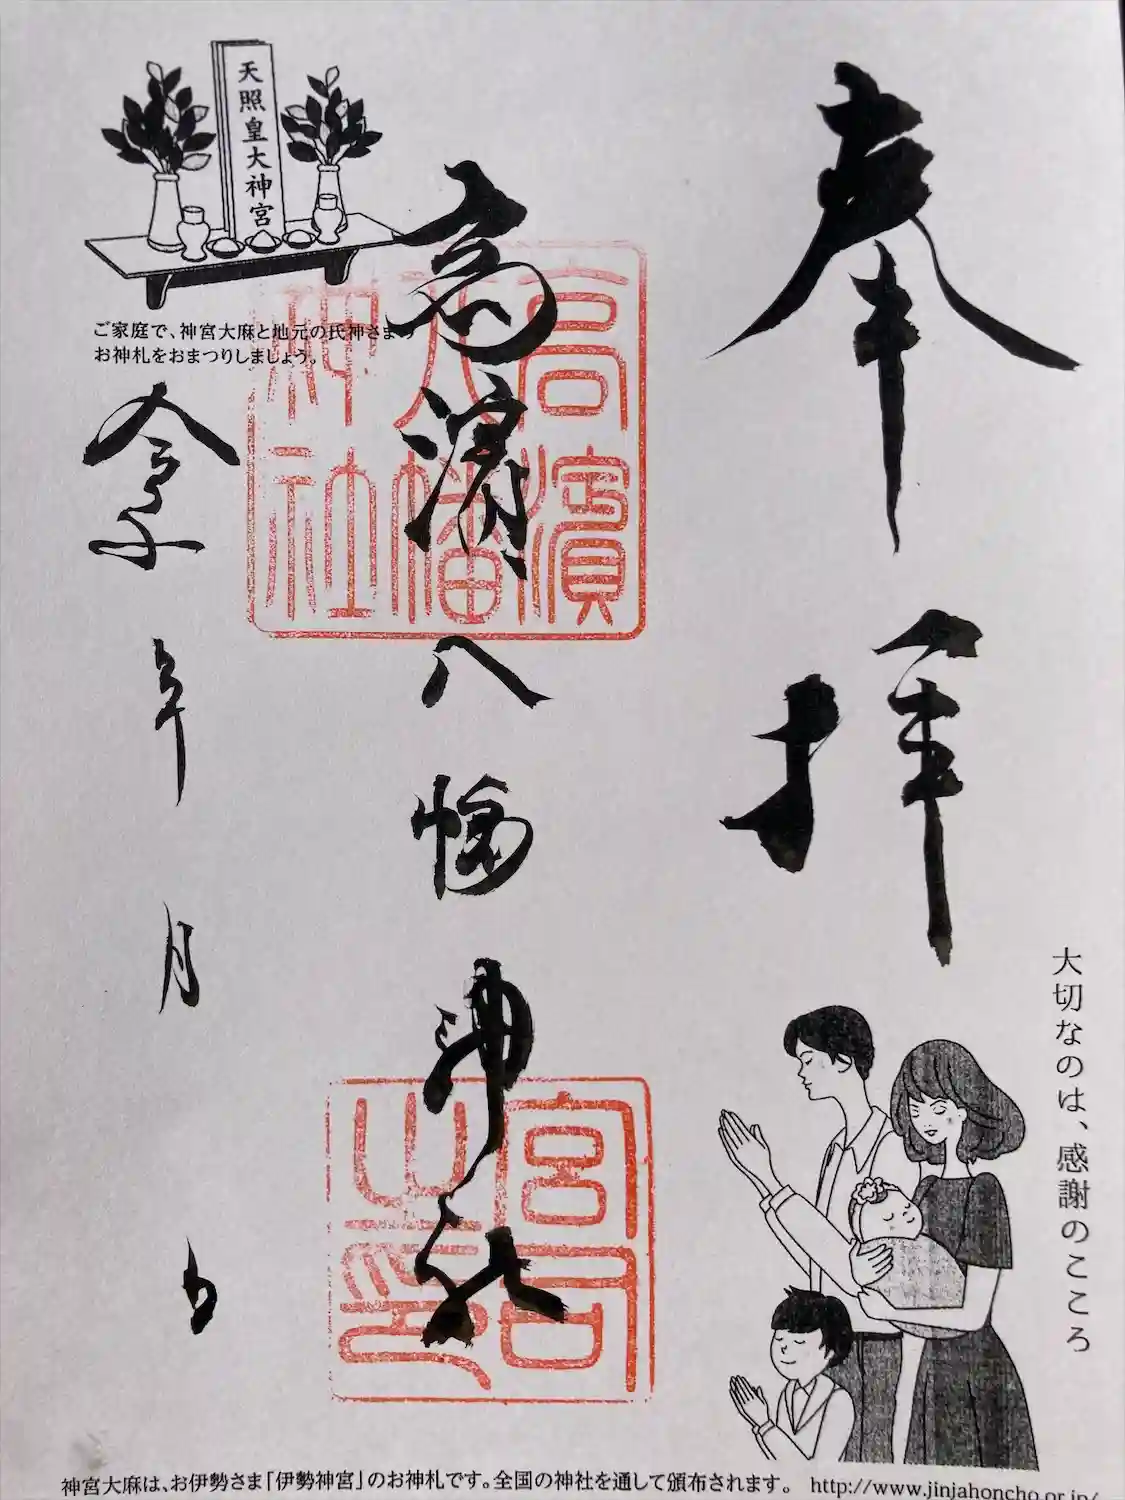 奉拝
大切なのは、感謝のこころ
高濱八幡神社
高濱
八幡
神社
宮司
之印
天照皇大神宮
ご家庭で、神宮大麻と地元の氏神さまの
お神札をおまつりしましょう。
令和 年 月 日
神宮大麻は、お伊勢さま「伊勢神宮」のお神札です。全国の神社を通して頒布されます。 http://www.jinjahoncho.or.jp/